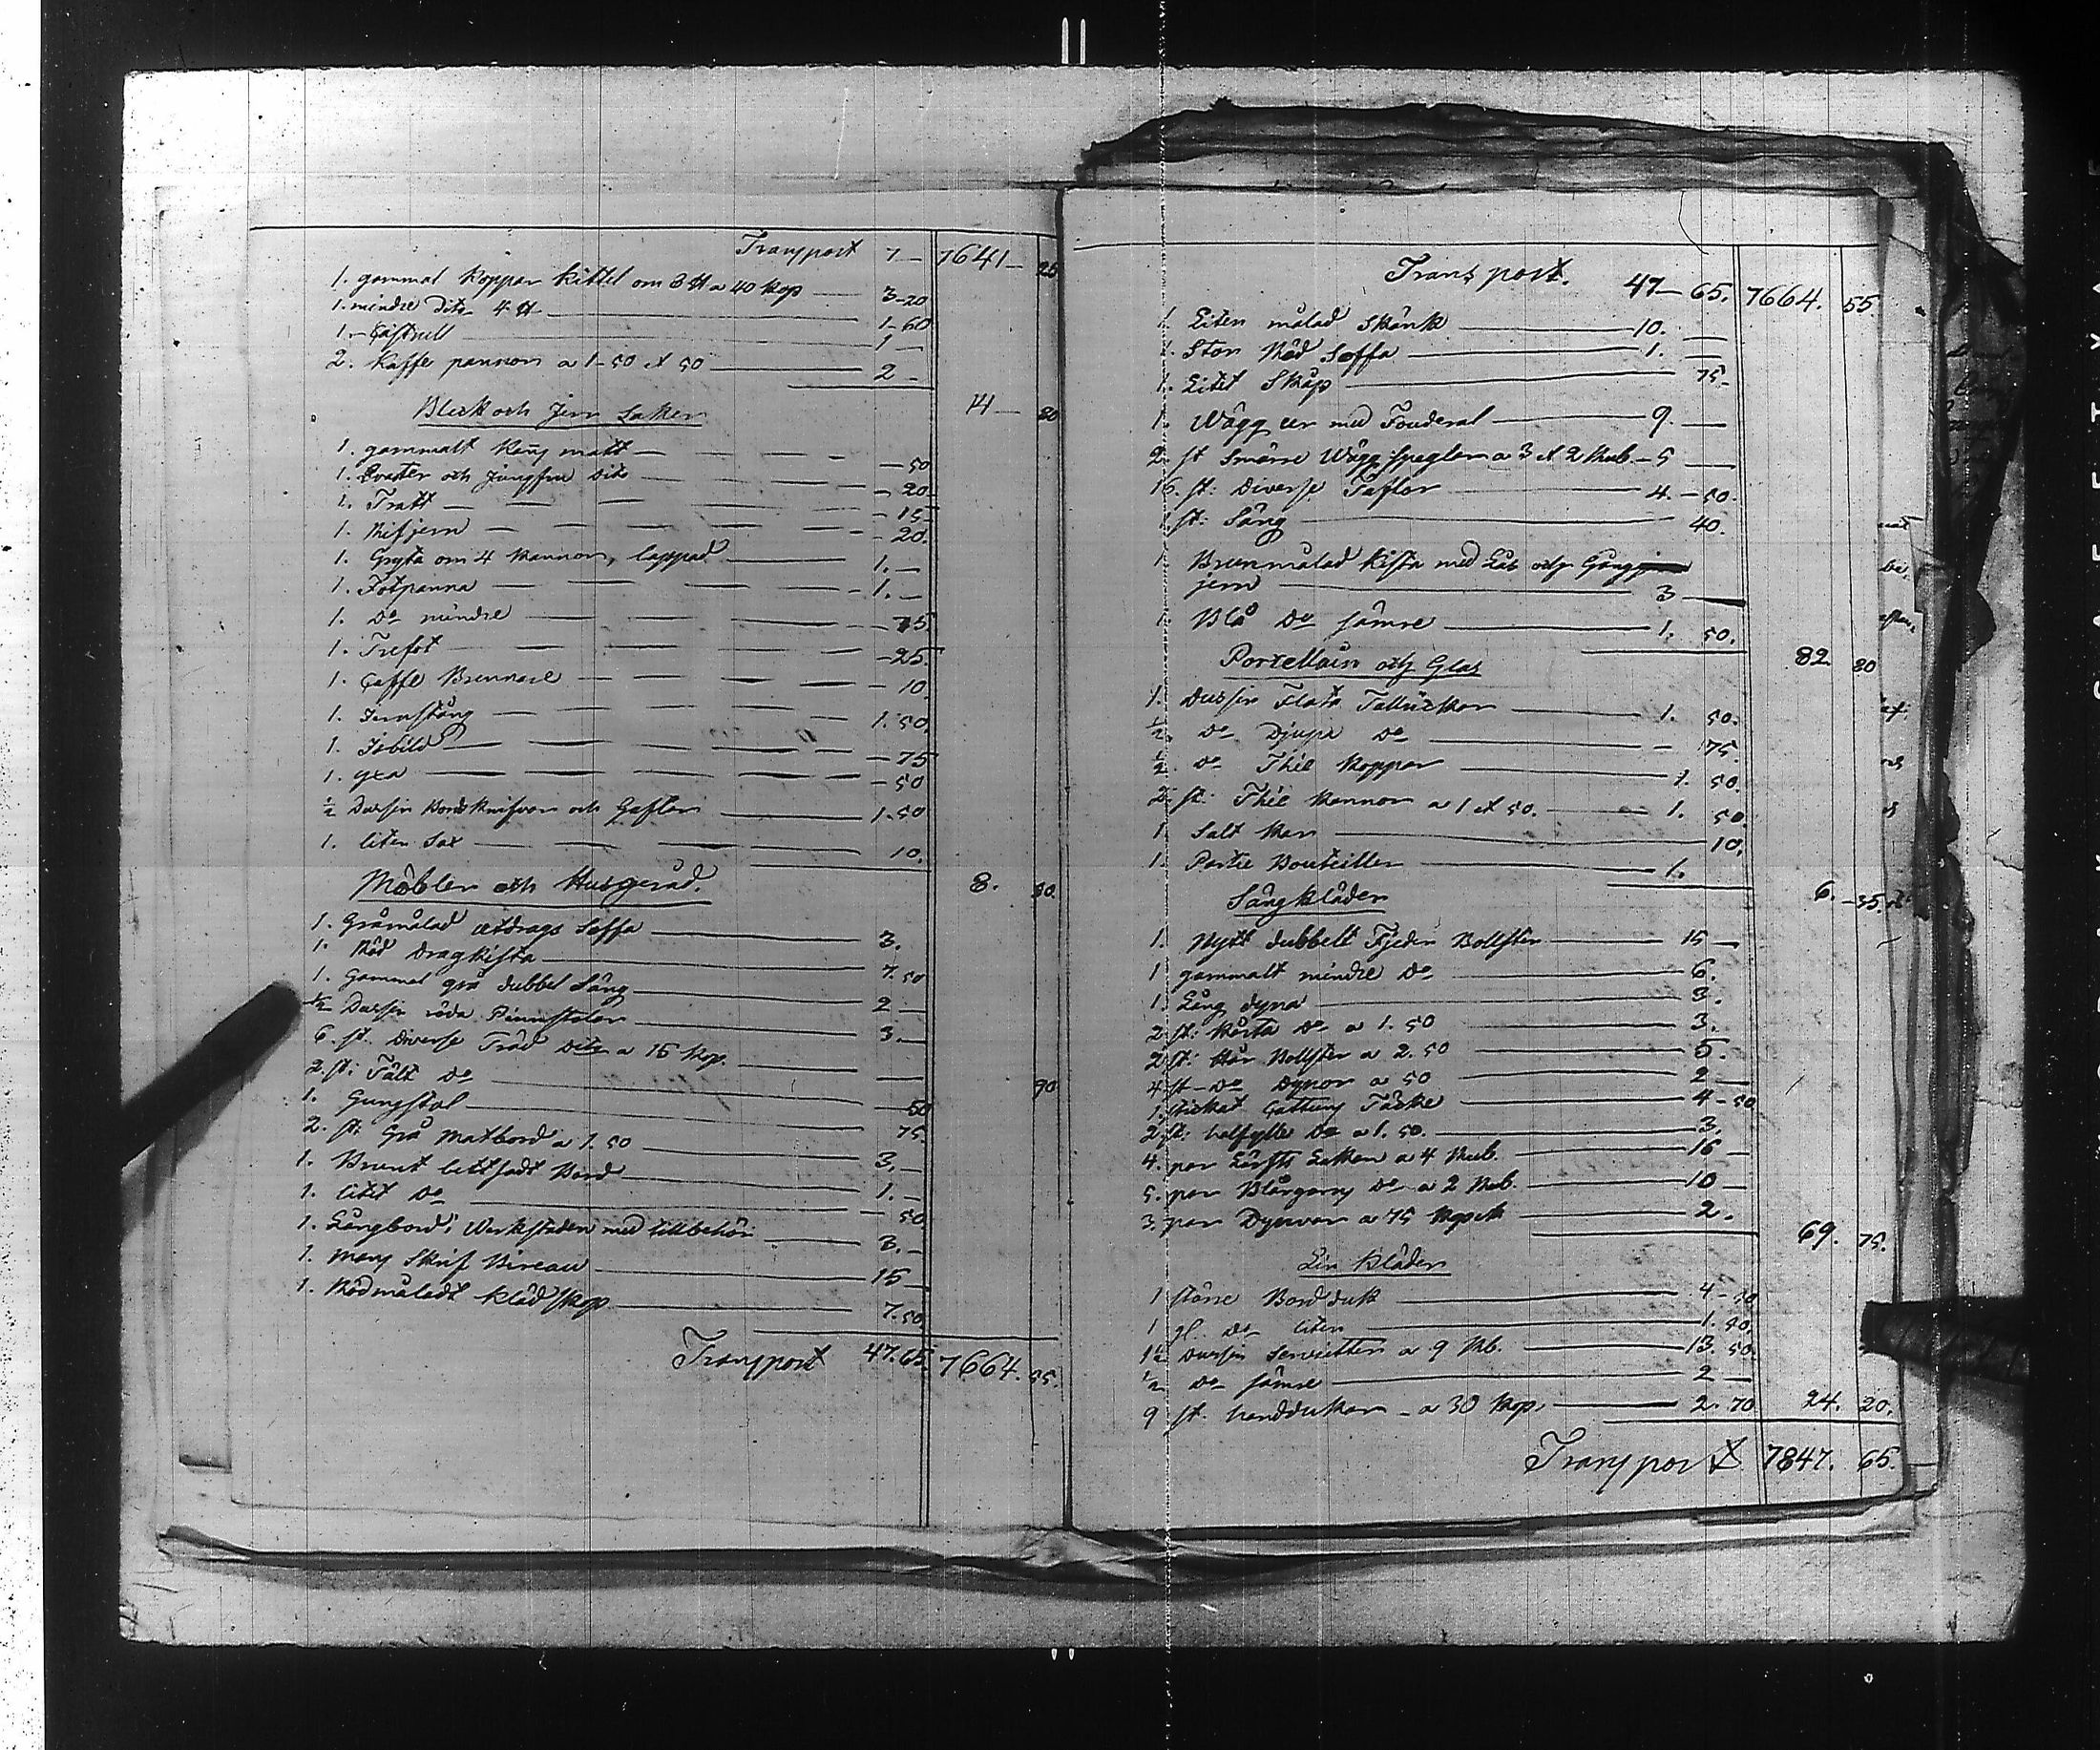 Transport 7 — 7641 — 25
1. gammal Koppar Kittel om 8 ℔ a 40 kop — 3-20
1. mindre dito 4 ℔ — 1-60
1. Castrull — 1 —
2. Kaffe pannor a 1-50 et 50 — 2 -
14 — 80
Bleck och Jern Saker
1. gammalt — 50
1. och dito — 20
1. Tratt — 15
1. Rifjern — 20.
1. Gryta om 4 Kannor, lappad — 1. —
1. Fotpanna — 1. —
1. Do mindre — 75
1. Trefot — 25.
1. Caffe Brennare — 10
1. Jernstång — 1. 50
1. — 75
1. yxa — 50
½ Dussin Bordsknifvar och Gafflar — 1. 50
1. liten Sax — 10.
Möbler och Husgeråd. 8. 50.
1. Gråmålad utdrags Soffa — 3.
1. Röd Dragkista — 7. 50
1. Gammal grå dubbel Säng — 2 —
½ Dussin röda Pinnstolar — 3. —
6. st. Diverse Träd Dito a 15 Kop. — 90
2. st: Fält Do — 50
1. Gungstol — 75
2. st: Grå Matbord a 1. 50 — 3. —
1. Brunt Bord — 1. —
1. litet Do — 50
1. Långbord i Werkstaden med tillbehör — 3. —
1. Skrif Bireau — 15 —
1. Rödmåladt klädskåp — 7. 50
Transport 47. 65. 7664. 55.
Transport. 47 — 65. 7664. 55
1. Liten målad Skänk — 10. —
1. Stor Röd Soffa — 1. —
1. Litet Skåp — 75 -
1. Wägg ur med Fouderal — 9. —
2. st Smärre Wägg speglar a 3 et 2 Rub. — 5 —
16. st: Diverse Taflor — 4. — 50.
1 st: Säng — 40.
1. Brunmålad Kista med Lås och Gång
jern — 3 —
1. Blå Do sämre — 1. 50.
Porcellain och Glas 82. 80
1. Dussin Flata Tallrickar — 1. 50.
½. Do Djupa Do — 75
½. Do Thée Koppar — 1. 50.
2. st: Thée Kannor a 1 et 50. — 1. 50
1. Salt Kar — 10.
1. Partie Bouteiller — 1.
Sängkläder 6. — 35.
1. Nytt dubbelt Fjeder Bollster — 15 —
1 gammalt mindre Do — 6.
1. Lång dyna — 3.
2 st: Korta Do a 1. 50 — 3.
2 st: Hår Bollster a 2. 50 — 5.
4 st Do Dynor a 50 — 2 —
1. stickat Cattuns Täcke — 4 - 50
2 st: Do a 1. 50. — 3.
4. par Lärfts Lakan a 4 Rub. — 16 —
5. par Blårgarns Do a 2 Rub. — 10 —
3. par Dynvar a 75 Kopek — 2.
69. 75.
Lin Kläder
1 större Bordduk — 4 - 50
1 gl. Do liten — 1. 50.
1½ Dussin Servietter a 9 Rb. — 13. 50.
½ Do sämre — 2 —
9 st. handdukar a 30 Kop. — 2. 70 24. 20.
Transport 7847. 65.